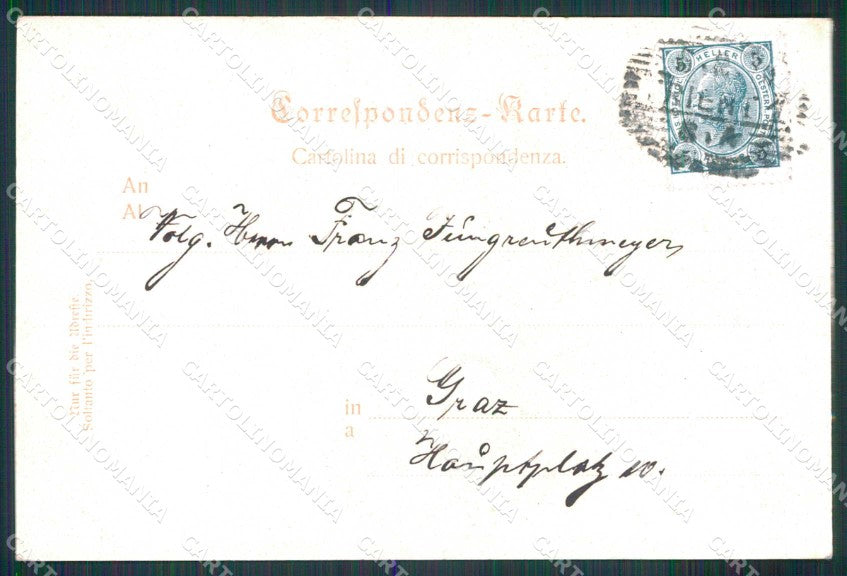 Correspondenz-Karte.
Cartolina di corrispondenza.
An
Al
Wolg. Herrn Franz Jüngreuthmeyer,
in
a
Graz
Hauptplatz 10.
Nur für die Adresse.
Soltanto per l'indirizzo.
5 HELLER 5
CARTOLINOMANIA